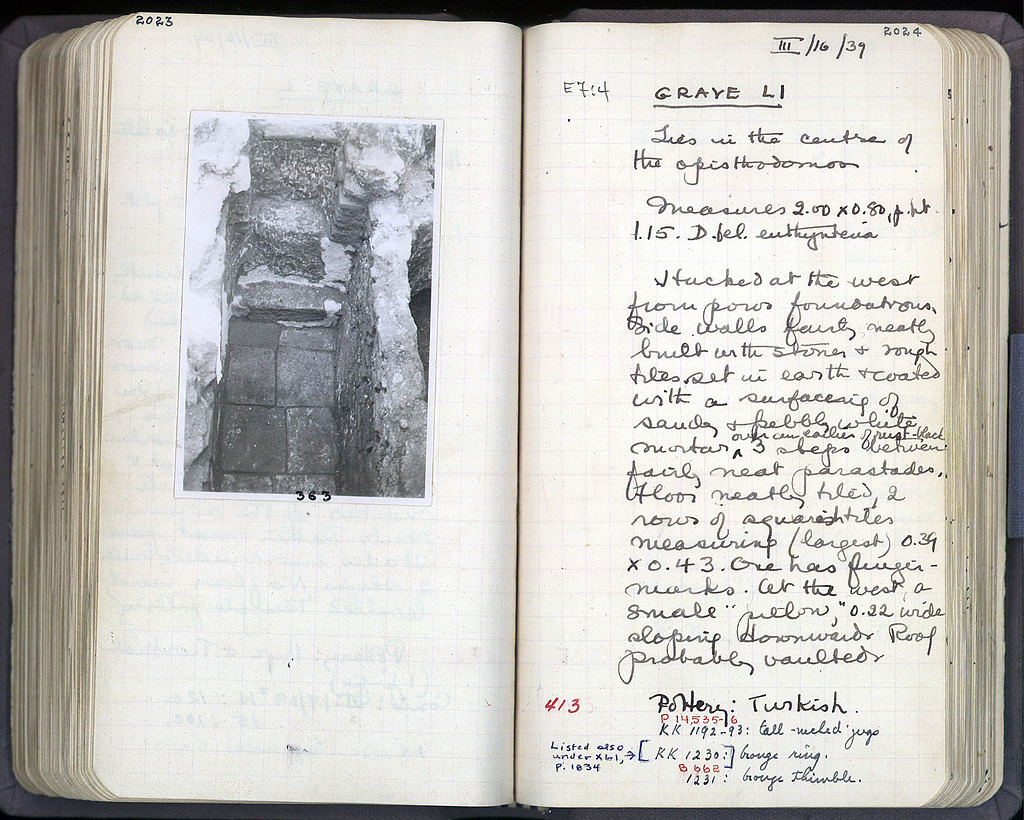 2023
363
2024
III/16/39
E7:4
GRAVE LI
Lies in the centre of
the opisthodomos
Measures 2.00 x 0.80, p. ht.
1.15. D. bel. euthynteria
Hacked at the west
from poros foundations.
Side walls fairly neatly
built with stones + rough
tiles set in earth + coated
with a surfacing of
sandy + pebbly white
over an earlier of rust-black
mortar ^ 3 steps between
fairly neat parastades.
Floor neatly tiled, 2
rows of squarish tiles
measuring (largest) 0.39
x 0.43. One has finger-
marks. At the west, a
small "pillow," 0.22 wide
sloping downwards Roof
probably vaulted
413
Pottery: Turkish.
P 14,535-6
KK 1192-93: tall-necked jugs
Listed also
under XLI,
p. 1834
KK 1230: bronze ring.
B 662
1231: bronze thimble.